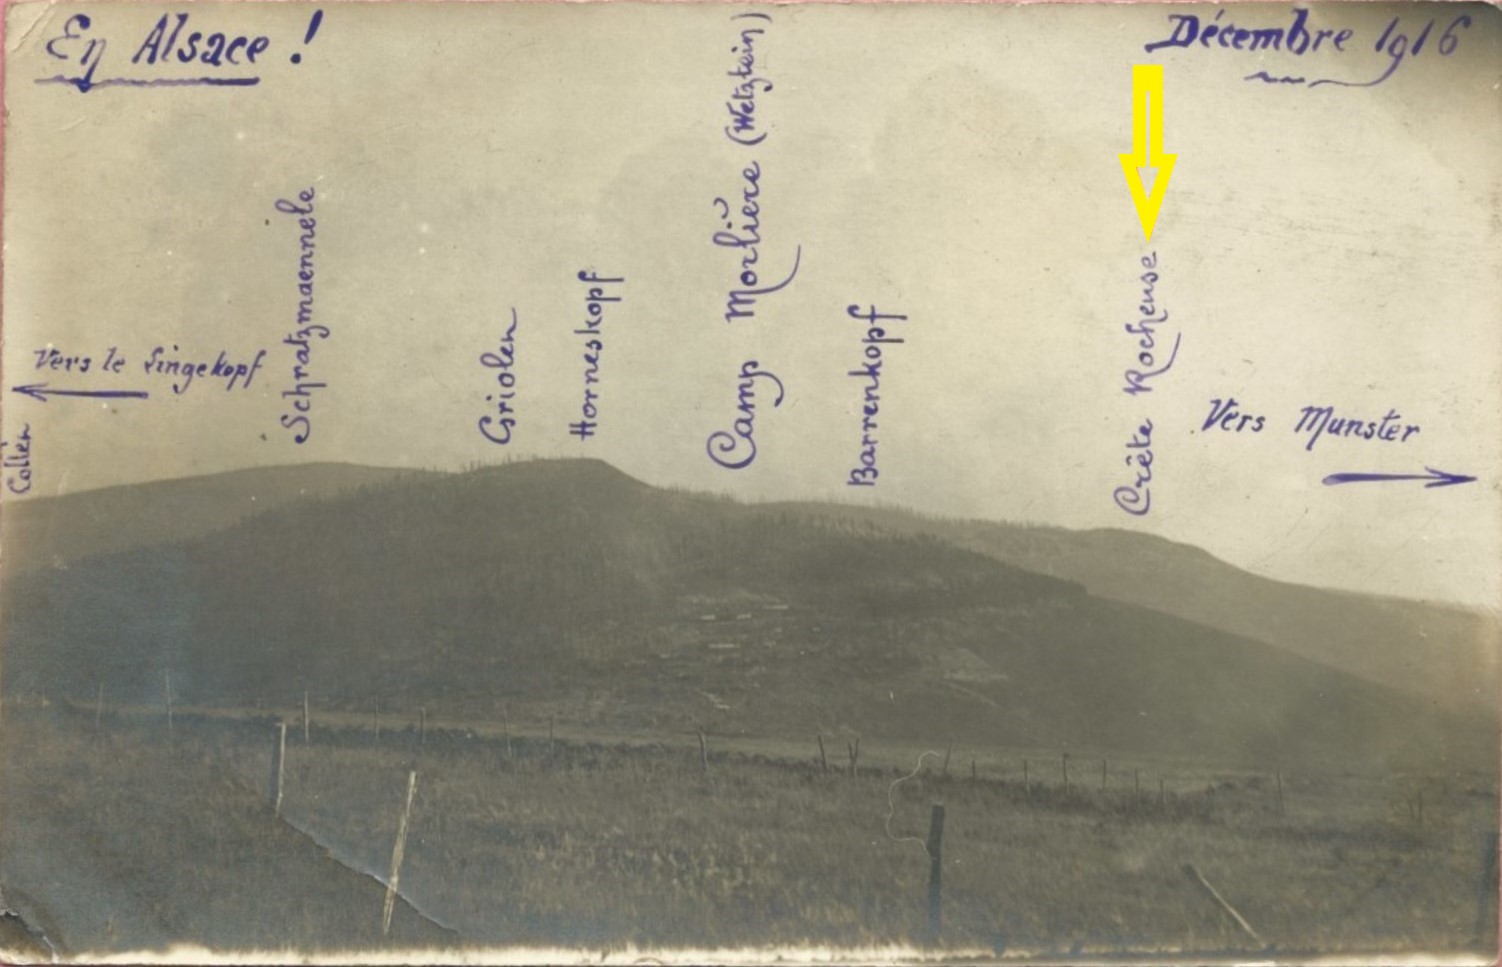 En Alsace !
Décembre 1916
Vers le Lingekopf
Collen
Schratzmaennele
Griolen
Horneskopf
Camp Morlière (Wetzstein)
Barrenkopf
Crête Rocheuse
Vers Munster